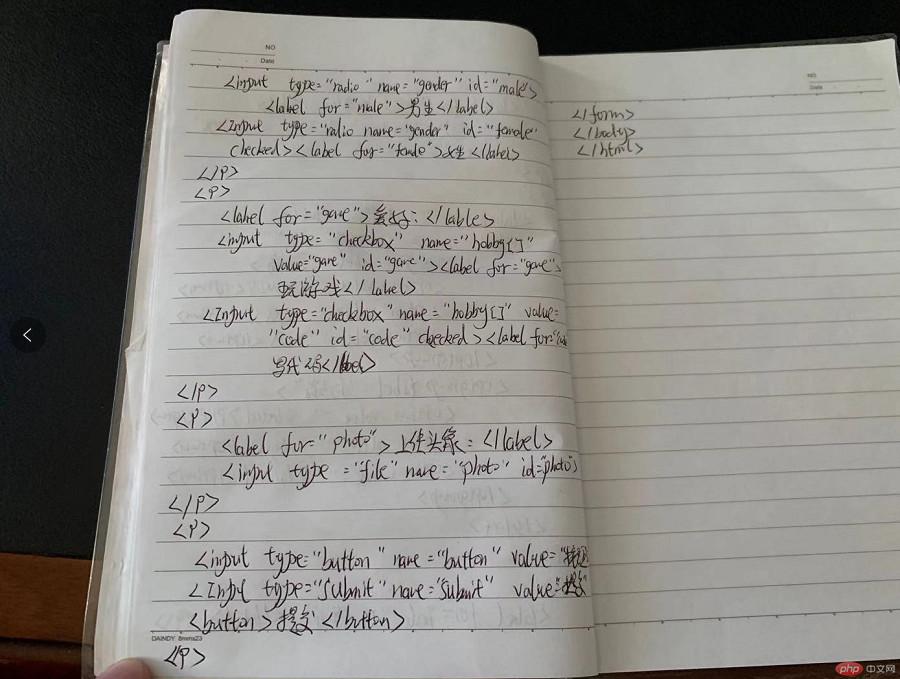 NO
Date
<input type="radio" name="gender" id="male">
<label for="male">男生</label>
<Input type="radio name="gender" id="female"
checked><label for="female">女生</label>
</P>
<P>
<label for="game">爱好:</lable>
<input type="checkbox" name="hobby[]"
value="game" id="game"><label for="game">
玩游戏</label>
<Input type="checkbox" name="hobby[]" value=
"code" id="code" checked><label for=
写代码</label>
</P>
<P>
<label for="photo">上传头像:</label>
<input type="file" name="photo" id="photo">
</P>
<P>
<input type="button" name="button" value=
<Input type="submit" name="submit" value="提交"
<button>提交</button>
DAINDY 8mmx23
<P>
NO
Date
</form>
</body>
</html>
php 中文网